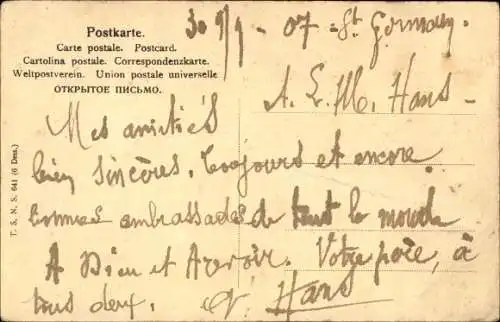 Postkarte.
Carte postale. Postcard.
Cartolina postale. Correspondenzkarte.
Weltpostverein. Union postale universelle
ОТКРЫТОЕ ПИСЬМО.
30 9/9 - 07 - St Germain.
A. L. M. Hans -
Mes amitiés
bien sincères. Toujours et encore
bonnes ambassades de tout le monde
A Dieu et Avevoir. Votre père, à
tous deux. Hans
T. S. N. S. 641 (6 Dess.)